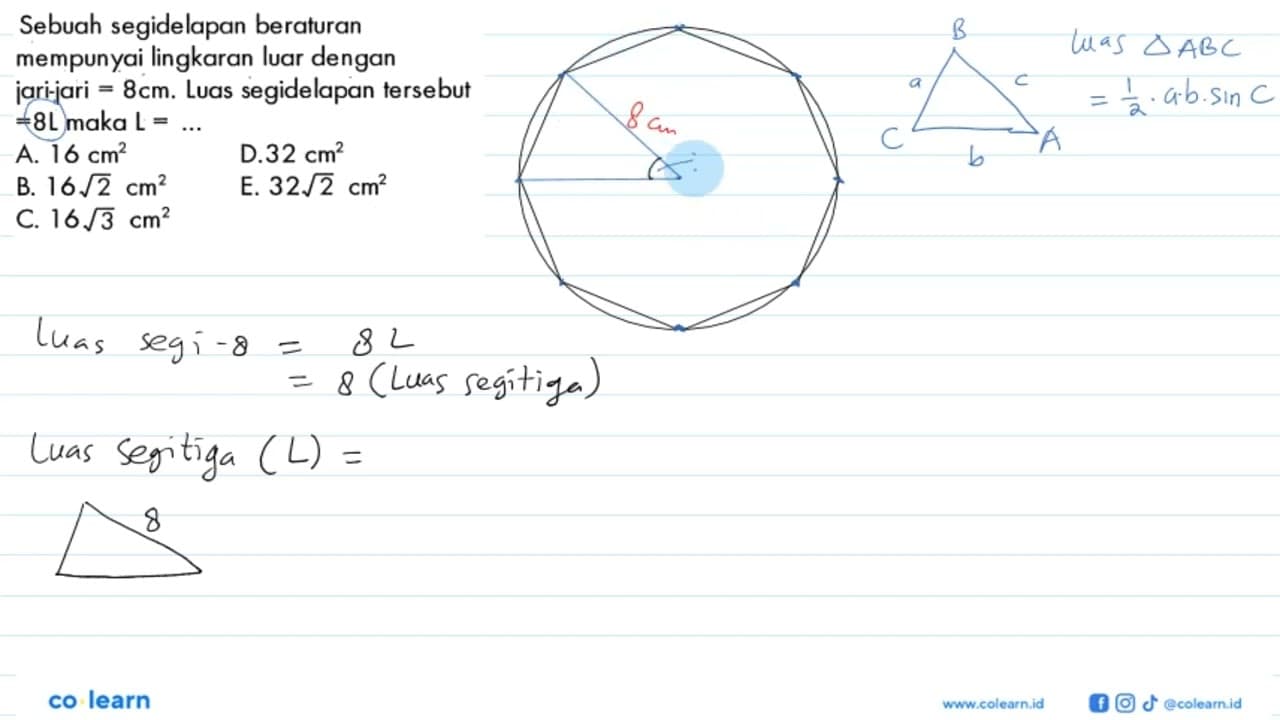 Sebuah segidelapan beraturan
mempunyai lingkaran luar dengan
jari-jari = 8cm. Luas segidelapan tersebut
=8L maka L = ...
A. 16 cm²
D.32 cm²
B. 16√2 cm²
E. 32√2 cm²
C. 16√3 cm²
8 cm
B
a
c
C
b
A
luas △ABC
= 1/2 . a.b. sin C
Luas segi-8 = 8L
= 8 (Luas segitiga)
Luas segitiga (L) =
8
co learn
www.colearn.id
@colearn.id